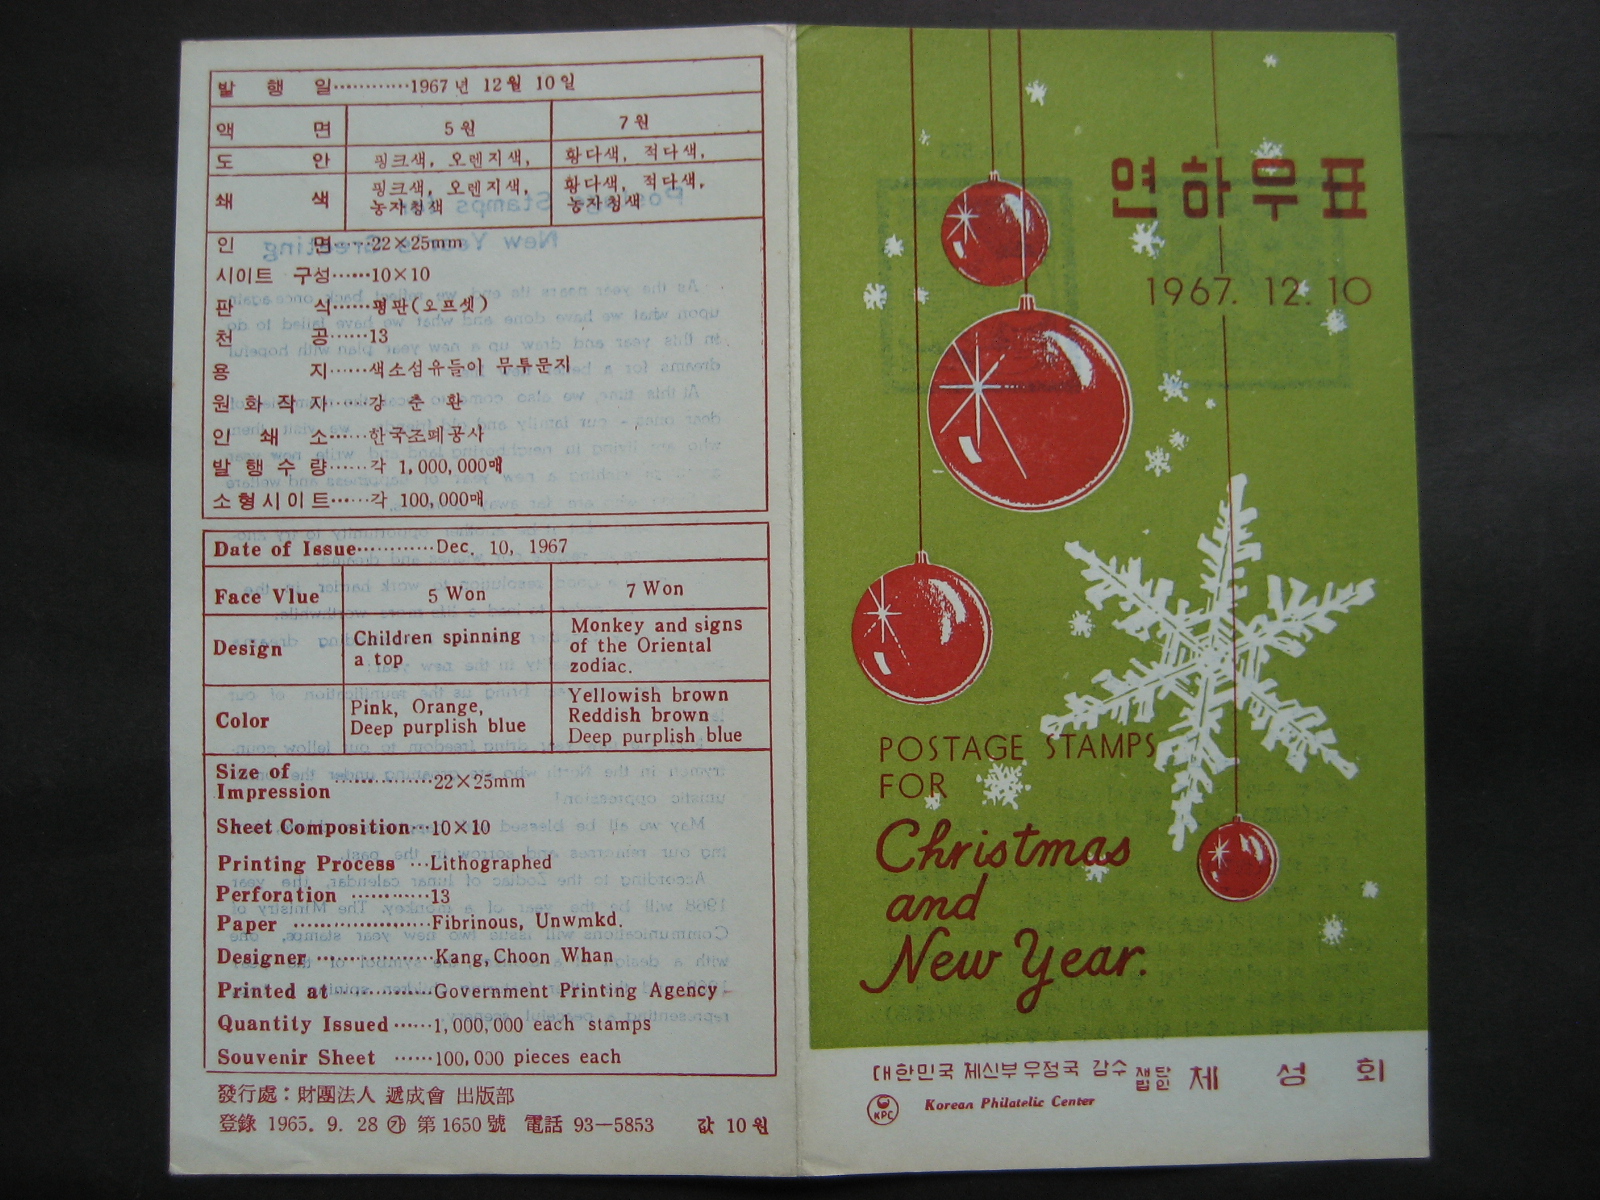 발 행 일············1967년 12월 10일
액 면 5원 7원
도 안 핑크색, 오렌지색, 황다색, 적다색,
쇄 색 핑크색, 오렌지색, 농자청색 황다색, 적다색, 농자청색
인 면······22×25mm
시이트 구성······10×10
판 식······평판(오프셋)
천 공······13
용 지······색소섬유들이 무투문지
원 화 작 자······강 춘 환
인 쇄 소······한국조폐공사
발 행 수 량······각 1,000,000매
소형시이트······각 100,000매
Date of Issue············Dec. 10, 1967
Face Vlue 5 Won 7 Won
Design Children spinning a top Monkey and signs of the Oriental zodiac.
Color Pink, Orange, Deep purplish blue Yellowish brown Reddish brown Deep purplish blue
Size of Impression ···············22×25mm
Sheet Composition···10×10
Printing Process ···Lithographed
Perforation ············13
Paper ·····················Fibrinous, Unwmkd.
Designer ··················Kang, Choon Whan
Printed at ···············Government Printing Agency
Quantity Issued ······1,000,000 each stamps
Souvenir Sheet ······100,000 pieces each
發行處：財團法人 遞成會 出版部
登錄 1965. 9. 28 ㉮ 第1650號 電話 93—5853 값 10원
연하우표
1967. 12. 10
POSTAGE STAMPS
FOR
Christmas
and
New Year.
대한민국 체신부 우정국 감수 재단법인 체 성 회
KPC Korean Philatelic Center